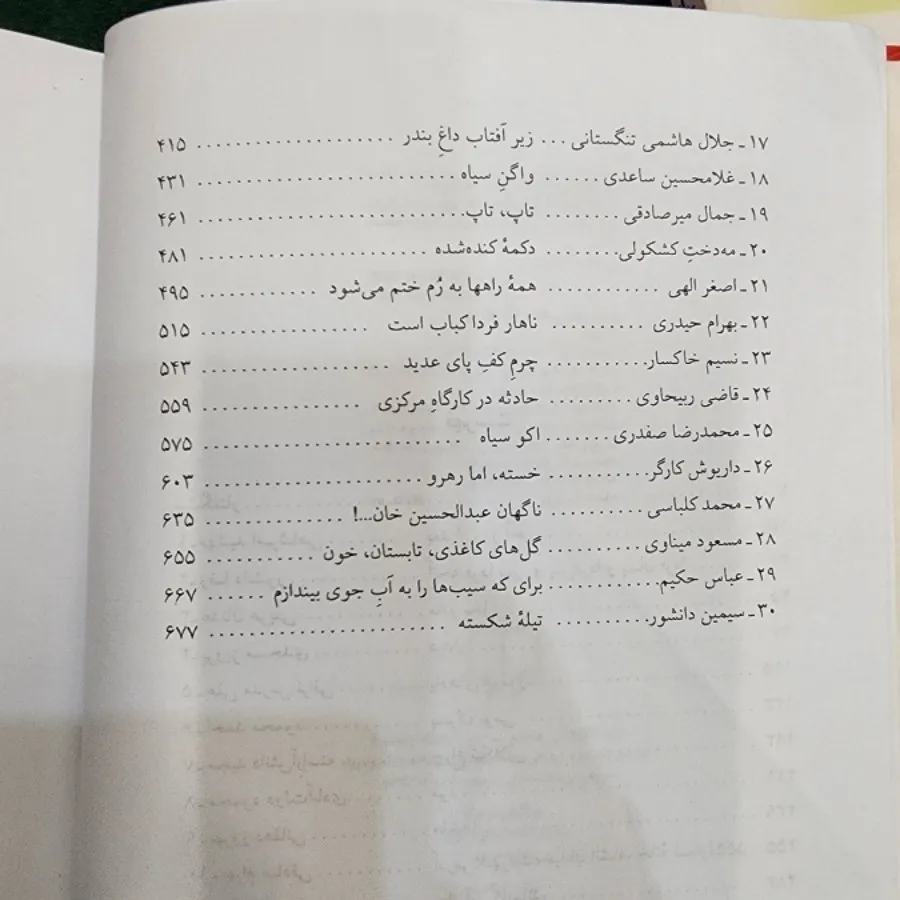 ۱۷ـ جلال هاشمی تنگستانی ... زیر آفتاب داغِ بندر .................... ۴۱۵
۱۸ـ غلامحسین ساعدی ...... واگنِ سیاه .......................... ۴۳۱
۱۹ـ جمال میرصادقی ........ تاپ، تاپ .......................... ۴۶۱
۲۰ـ مه‌دختِ کشکولی ........ دکمهٔ کنده‌شده ...................... ۴۸۱
۲۱ـ اصغر الهی ............ همهٔ راهها به رُم ختم می‌شود ............ ۴۹۵
۲۲ـ بهرام حیدری .......... ناهار فردا کباب است ................. ۵۱۵
۲۳ـ نسیم خاکسار ........... چرمِ کفِ پای عدید ................... ۵۴۳
۲۴ـ قاضی ربیحاوی ......... حادثه در کارگاهِ مرکزی ................ ۵۵۹
۲۵ـ محمدرضا صفدری ....... اکو سیاه .......................... ۵۷۵
۲۶ـ داریوش کارگر ........... خسته، اما رهرو ...................... ۶۰۳
۲۷ـ محمد کلباسی .......... ناگهان عبدالحسین خان...! .............. ۶۳۵
۲۸ـ مسعود میناوی .......... گل‌های کاغذی، تابستان، خون ........... ۶۵۵
۲۹ـ عباس حکیم ............ برای که سیب‌ها را به آبِ جوی بیندازم ...... ۶۶۷
۳۰ـ سیمین دانشور .......... تیلهٔ شکسته ........................ ۶۷۷